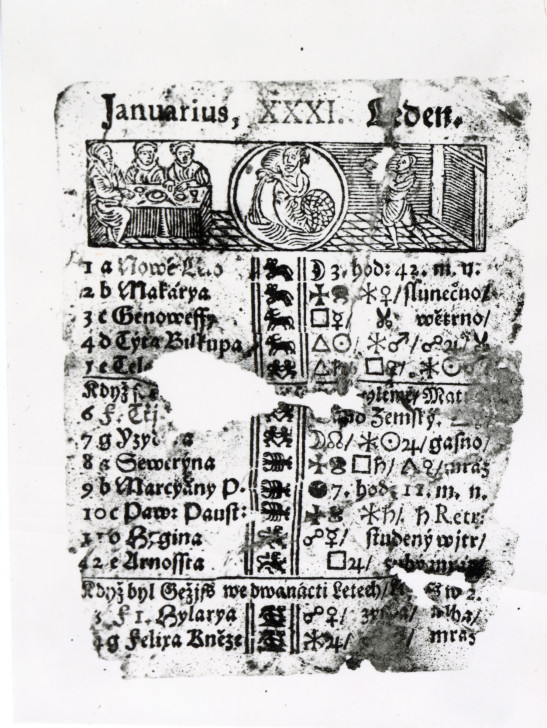 Januarius, XXXI. Leden.
1 a Nowé Léto ☽ 3. hod: 42. m. n:
2 b Makárya ✠ ⚹♀/ slunečno/
3 c Genoweffy □☿/ ✂ wětrno/
4 d Tyta Biskupa △☉/ ⚹♂/ ☍♃ ✂
5 e □ ⚹☉
Když
6 f. Zemský.
7 g ☽☊/ ⚹☉♃/ gasno/
8 a Seweryna ✠ □♄/ △♀/ mráz
9 b Marcyány P. 7. hod: 11. m. n.
10 c Paw: Paust: ✠ ⚹♄. ♄ Retr:
Hygina ☍☿/ studený wjtr/
12 e Arnossta □♃/
Když byl Gežjss we dwanácti Letech/ 2.
f 1. Hylarya ☍♀/
g Felixa Kněze ⚹♃/ mráz